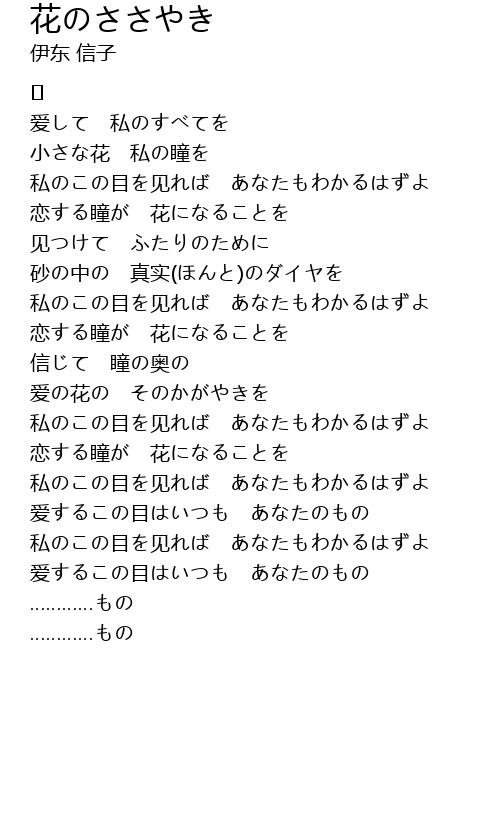 花のささやき
伊东 信子
爱して　私のすべてを
小さな花　私の瞳を
私のこの目を见れば　あなたもわかるはずよ
恋する瞳が　花になることを
见つけて　ふたりのために
砂の中の　真实(ほんと)のダイヤを
私のこの目を见れば　あなたもわかるはずよ
恋する瞳が　花になることを
信じて　瞳の奥の
爱の花の　そのかがやきを
私のこの目を见れば　あなたもわかるはずよ
恋する瞳が　花になることを
私のこの目を见れば　あなたもわかるはずよ
爱するこの目はいつも　あなたのもの
私のこの目を见れば　あなたもわかるはずよ
爱するこの目はいつも　あなたのもの
............もの
............もの